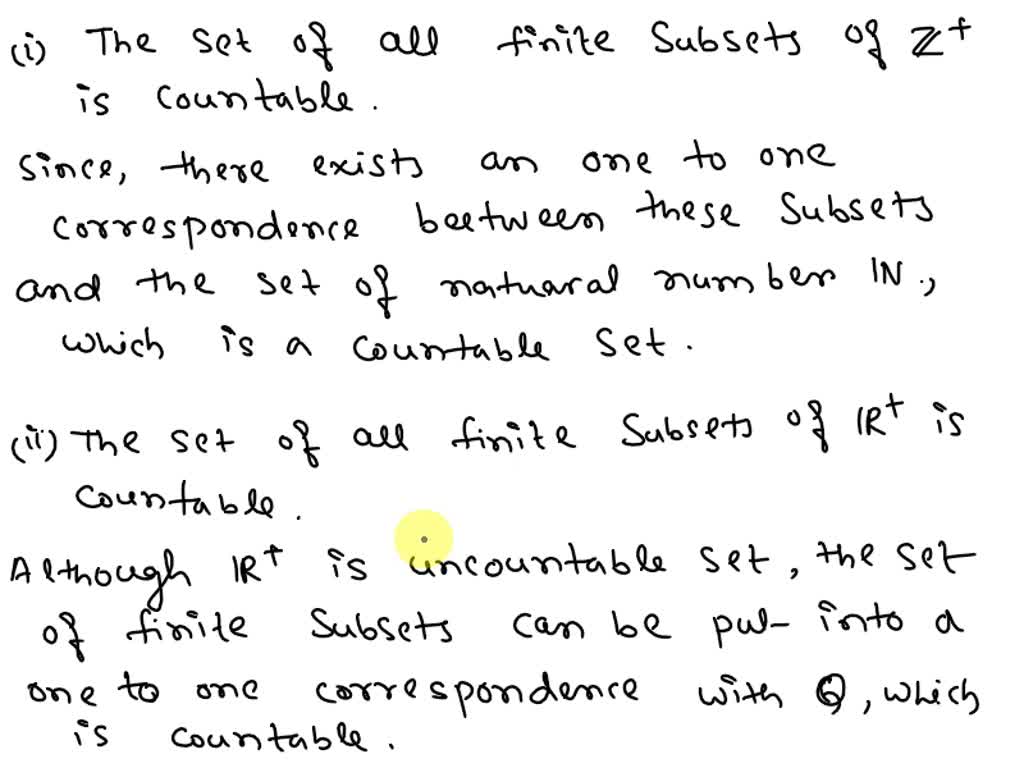 (i) The set of all finite Subsets of ℤ+
is countable.
Since, there exists an one to one
correspondence beetween these Subsets
and the set of natuaral number IN.,
which is a countable set.
(ii) The set of all finite Subsets of IR+ is
countable.
Although IR+ is uncountable set, the set
of finite Subsets can be put into a
one to one correspondence with Q, which
is countable.